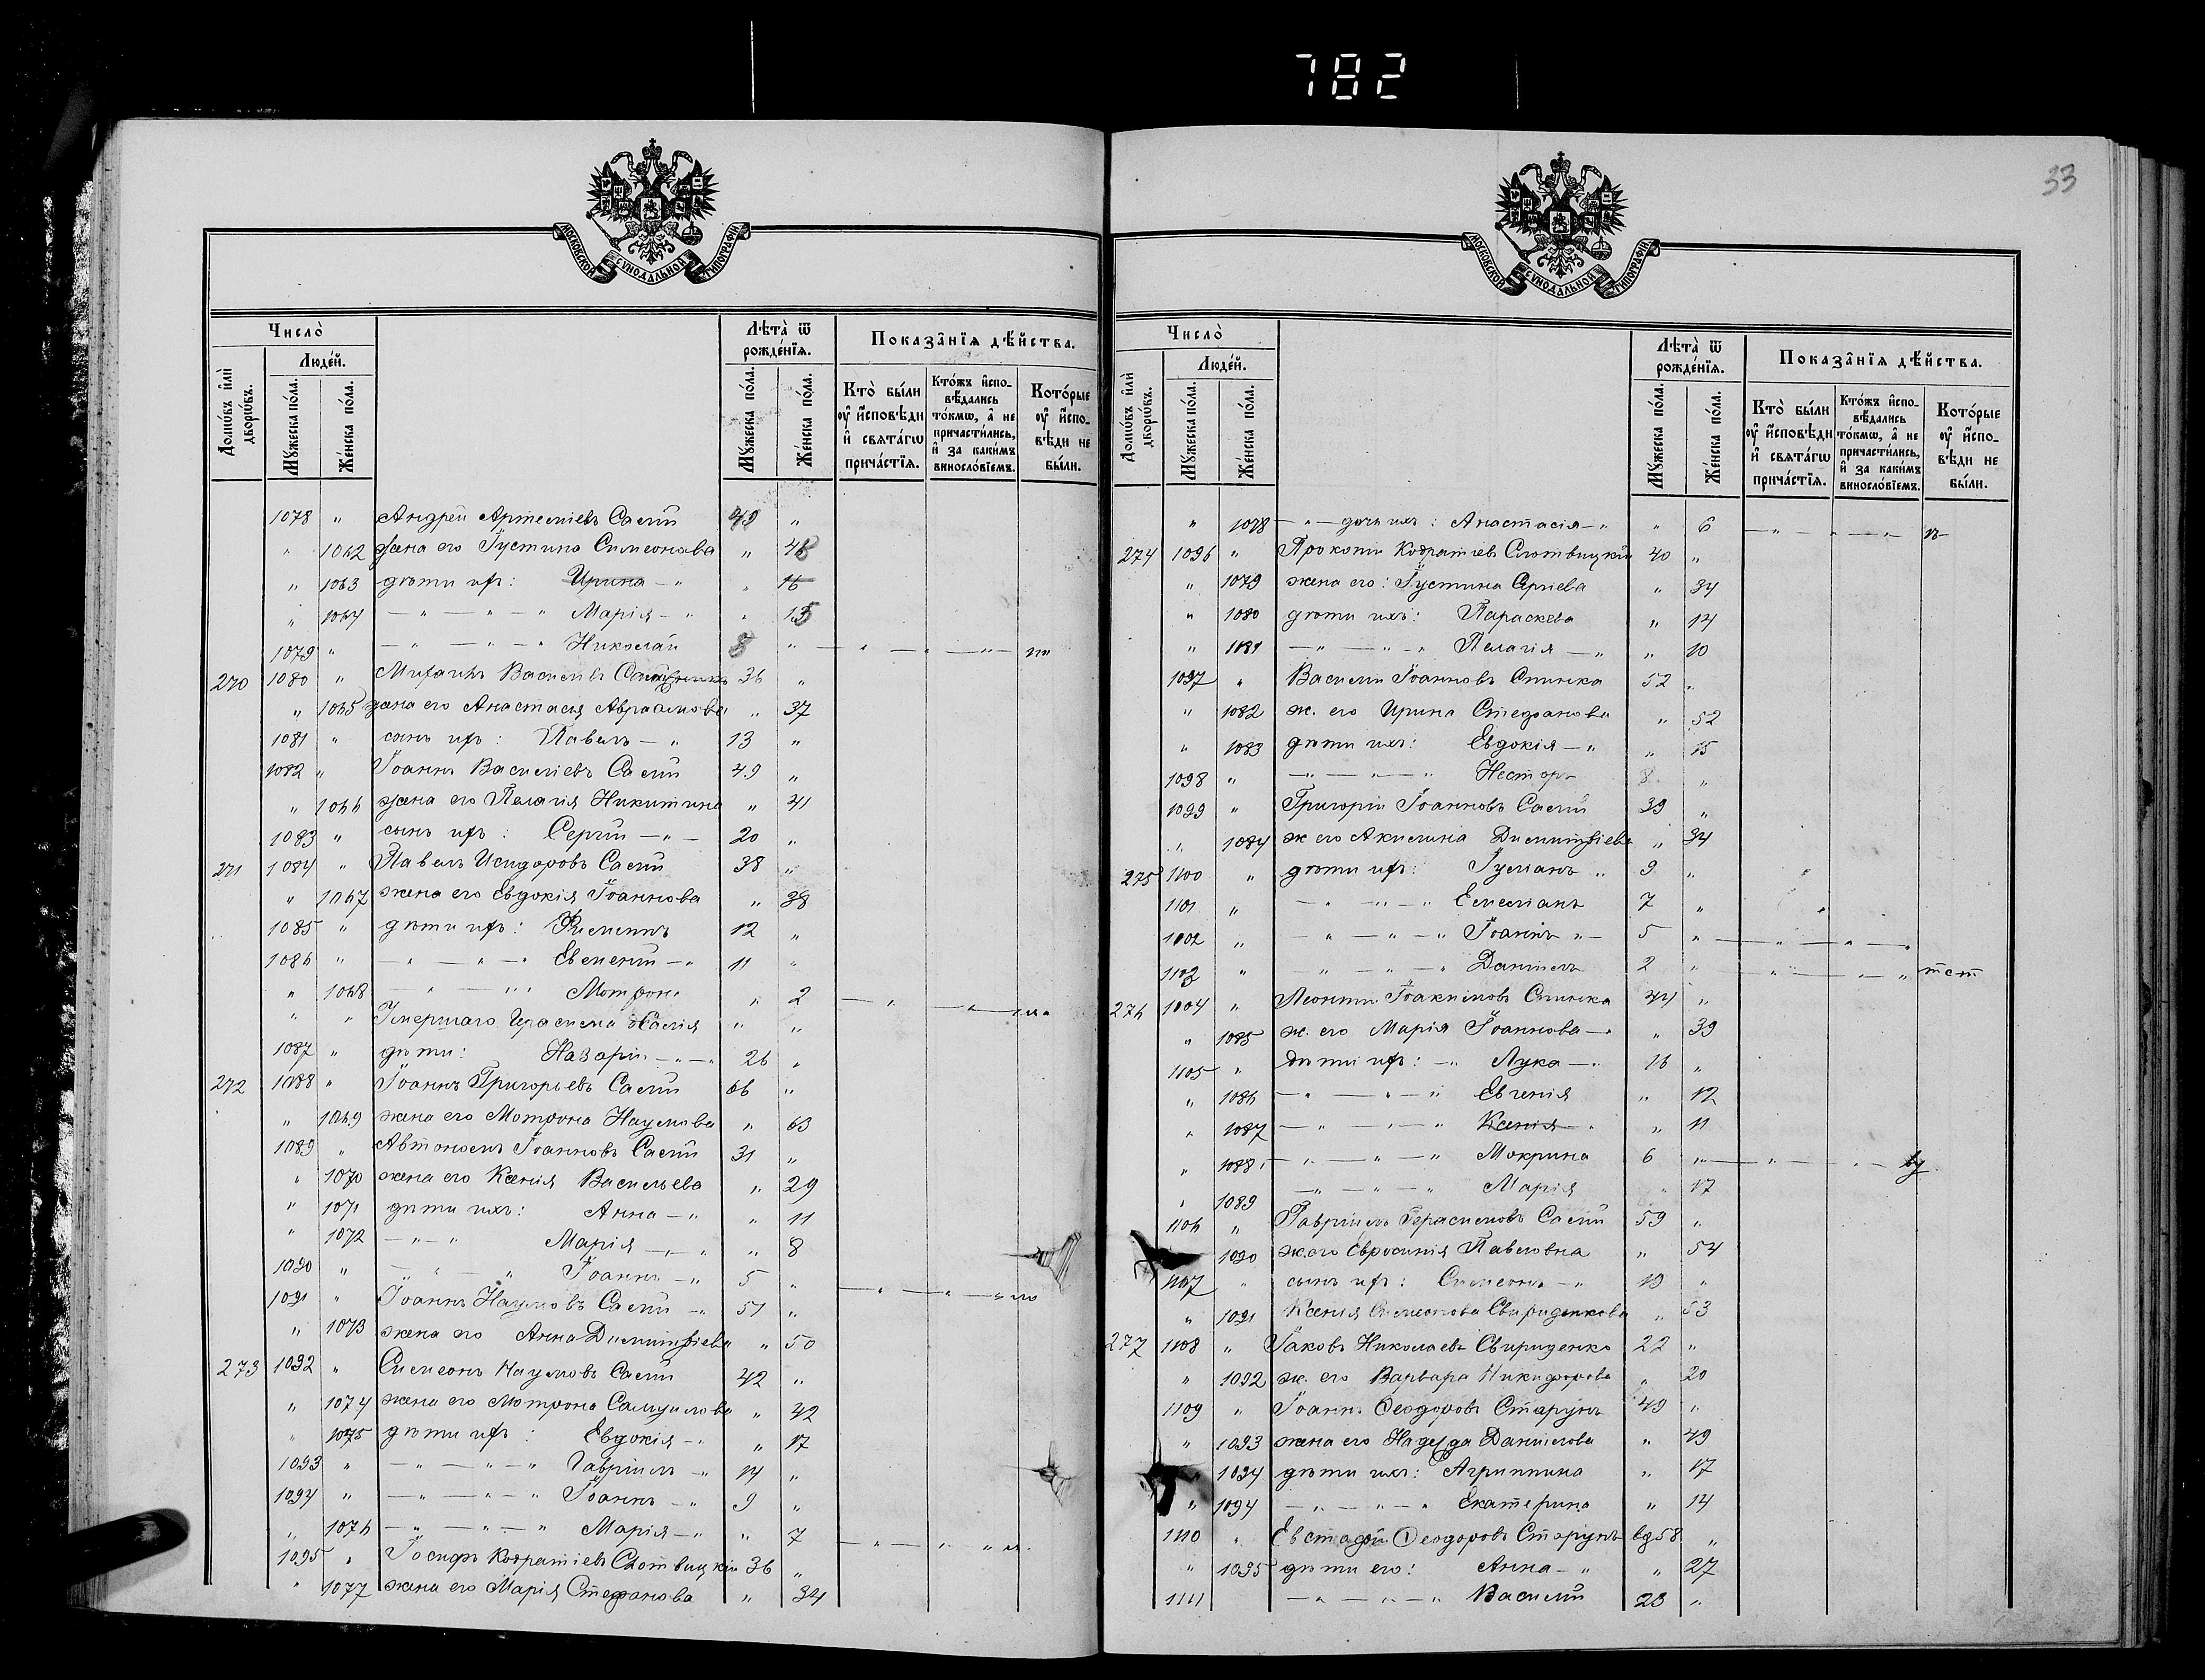 782
33
МОСКОВСКОЙ СѴНОДАЛЬНОЙ ТИПОГРАФІИ
Число̀
Людéй.
Домѡ́въ и҆лѝ дворѡ́въ.
Мꙋ́жеска по́ла.
Же́нска по́ла.
Лѣта̀ ѿ рожде́нїѧ.
Мꙋ́жеска по́ла.
Же́нска по́ла.
Показа̑нїѧ дѣ́йства.
Кто̀ бы́ли оу҆ и҆сповѣди и҆ свѧта́гѡ прича́стїѧ.
Кто́жъ и҆спо-вѣдались то́кмѡ, а҆ не причасти́лись, и҆ за каки́мъ винослóвїемъ.
Кото́рые оу҆ и҆спо-вѣди не бы́ли.
1078 " Андрей Артеміевъ Салій 49 "
" 1062 жена его Іустина Симеонова " 48
" 1063 дѣти ихъ: Ирина - " " 16
" 1064 — " — " — " Марія - " " 15
1079 " — " — " — " Николай 8 "
270 1080 " Василіевъ 36 "
" 1065 жена его Анастасія Авраамова " 37
1081 " сынъ ихъ: Павелъ — " 13 "
1082 " Іоаннъ Василіевъ Салій 49 "
" 1066 жена его Пелагія Никитина " 41
1083 " сынъ ихъ: Сергій — " — 20 "
271 1084 " Павелъ Исидоровъ Салій 38 "
" 1067 жена его Евдокія Іоаннова " 38
1085 " дѣти ихъ: Филиппъ 12 "
1086 " — " — " — " Евменій — " 11 "
" 1068 — " — " " Мотрона " 2
" " Умершаго Герасима Салія " "
1087 " дѣти: Назарій — " — " 26 "
272 1088 " Іоаннъ Григорьевъ Салій 66 "
" 1069 жена его Мотрона Наумова " 63
1089 " Автономъ Іоанновъ Салій 31 "
" 1070 жена его Ксенія Васильева " 29
" 1071 дѣти ихъ: Анна — " " 11
" 1072 — " — " Марія — " — " " 8
1090 " — " — " Іоаннъ — " 5 "
1091 " Іоаннъ Наумовъ Салій — " 51 "
" 1073 жена его Анна Димитріева " 50
273 1092 " Симеонъ Наумовъ Салій 42 "
" 1074 жена его Мотрона Самуилова " 42
" 1075 дѣти ихъ: Евдокія — " " 17
1093 " — " — " — " Гавріилъ — " 14 "
1094 " — " — " — " Іоаннъ — " 9 "
" 1076 — " — " — " Марія — " " 7
1095 " Іосифъ Кодратіевъ Слотвицкій 36 "
" 1077 жена его Марія Стефанова " 34
МОСКОВСКОЙ СѴНОДАЛЬНОЙ ТИПОГРАФІИ
Число̀
Людéй.
Домѡ́въ и҆лѝ дворѡ́въ.
Мꙋ́жеска по́ла.
Же́нска по́ла.
Лѣта̀ ѿ рожде́нїѧ.
Мꙋ́жеска по́ла.
Же́нска по́ла.
Показа̑нїѧ дѣ́йства.
Кто̀ бы́ли оу҆ и҆сповѣди и҆ свѧта́гѡ прича́стїѧ.
Кто́жъ и҆спо-вѣдались то́кмѡ, а҆ не причасти́лись, и҆ за каки́мъ винослóвїемъ.
Кото́рые оу҆ и҆спо-вѣди не бы́ли.
" 1078 — " — дочь ихъ: Анастасія — " " 6
274 1096 " Прокопій Кодратіевъ Слотвицкій 40 "
" 1079 жена его: Іустина Сергіева " 34
" 1080 дѣти ихъ: Параскева " 14
" 1181 — " — " — " Пелагія — " " 10
1097 " Василій Іоанновъ Спинка 52 "
" 1082 ж. его Ирина Стефанова " 52
" 1083 дѣти ихъ: Евдокія — " " 15
1098 " — " — " — " Несторъ 8 "
1099 " Григорій Іоанновъ Салій 39 "
" 1084 ж его Акилина Димитріева " 34
275 1100 " дѣти ихъ: Гурианъ " 9 "
1101 " — " — " — " Емеліанъ 7 "
1102 " — " — " — " Іоаннъ " — 5 "
1103 " — " — " — " Даніилъ 2 "
276 1104 " Леонтій Іоакимовъ Спинка 44 "
" 1085 ж. его Марія Іоаннова — " " 39
1105 " дѣти ихъ: — " Лука — " 16 "
" 1086 — " — " — " Евгенія " 12
" 1087 — " — " — " Ксенія " " 11
" 1088 — " — " — " Мокрина 6
" 1089 — " — " — " Марія " 17
1106 " Гавріилъ Герасимовъ Салій 59 "
1090 ж. его Евросинія Павловна " 54
1107 " сынъ ихъ: Симеонъ — " 19 "
" 1091 Ксенія Симеонова Свириденкова " 53
277 1108 " Іаковъ Николаевъ Свириденко 22 "
" 1092 ж. его Варвара Никифорова " 20
1109 " Іоаннъ Ѳеодоровъ Старунъ 49 "
" 1093 жена его Надежда Даніилова " 49
1094 дѣти ихъ: Агриппина " 17
" 1094 — " — " — " Екатерина " 14
1110 " Евстафій Ѳеодоровъ Старунъ вд 58 "
" 1095 дѣти его: Анна — " " 27
1111 — " — " — " Василій 23 "